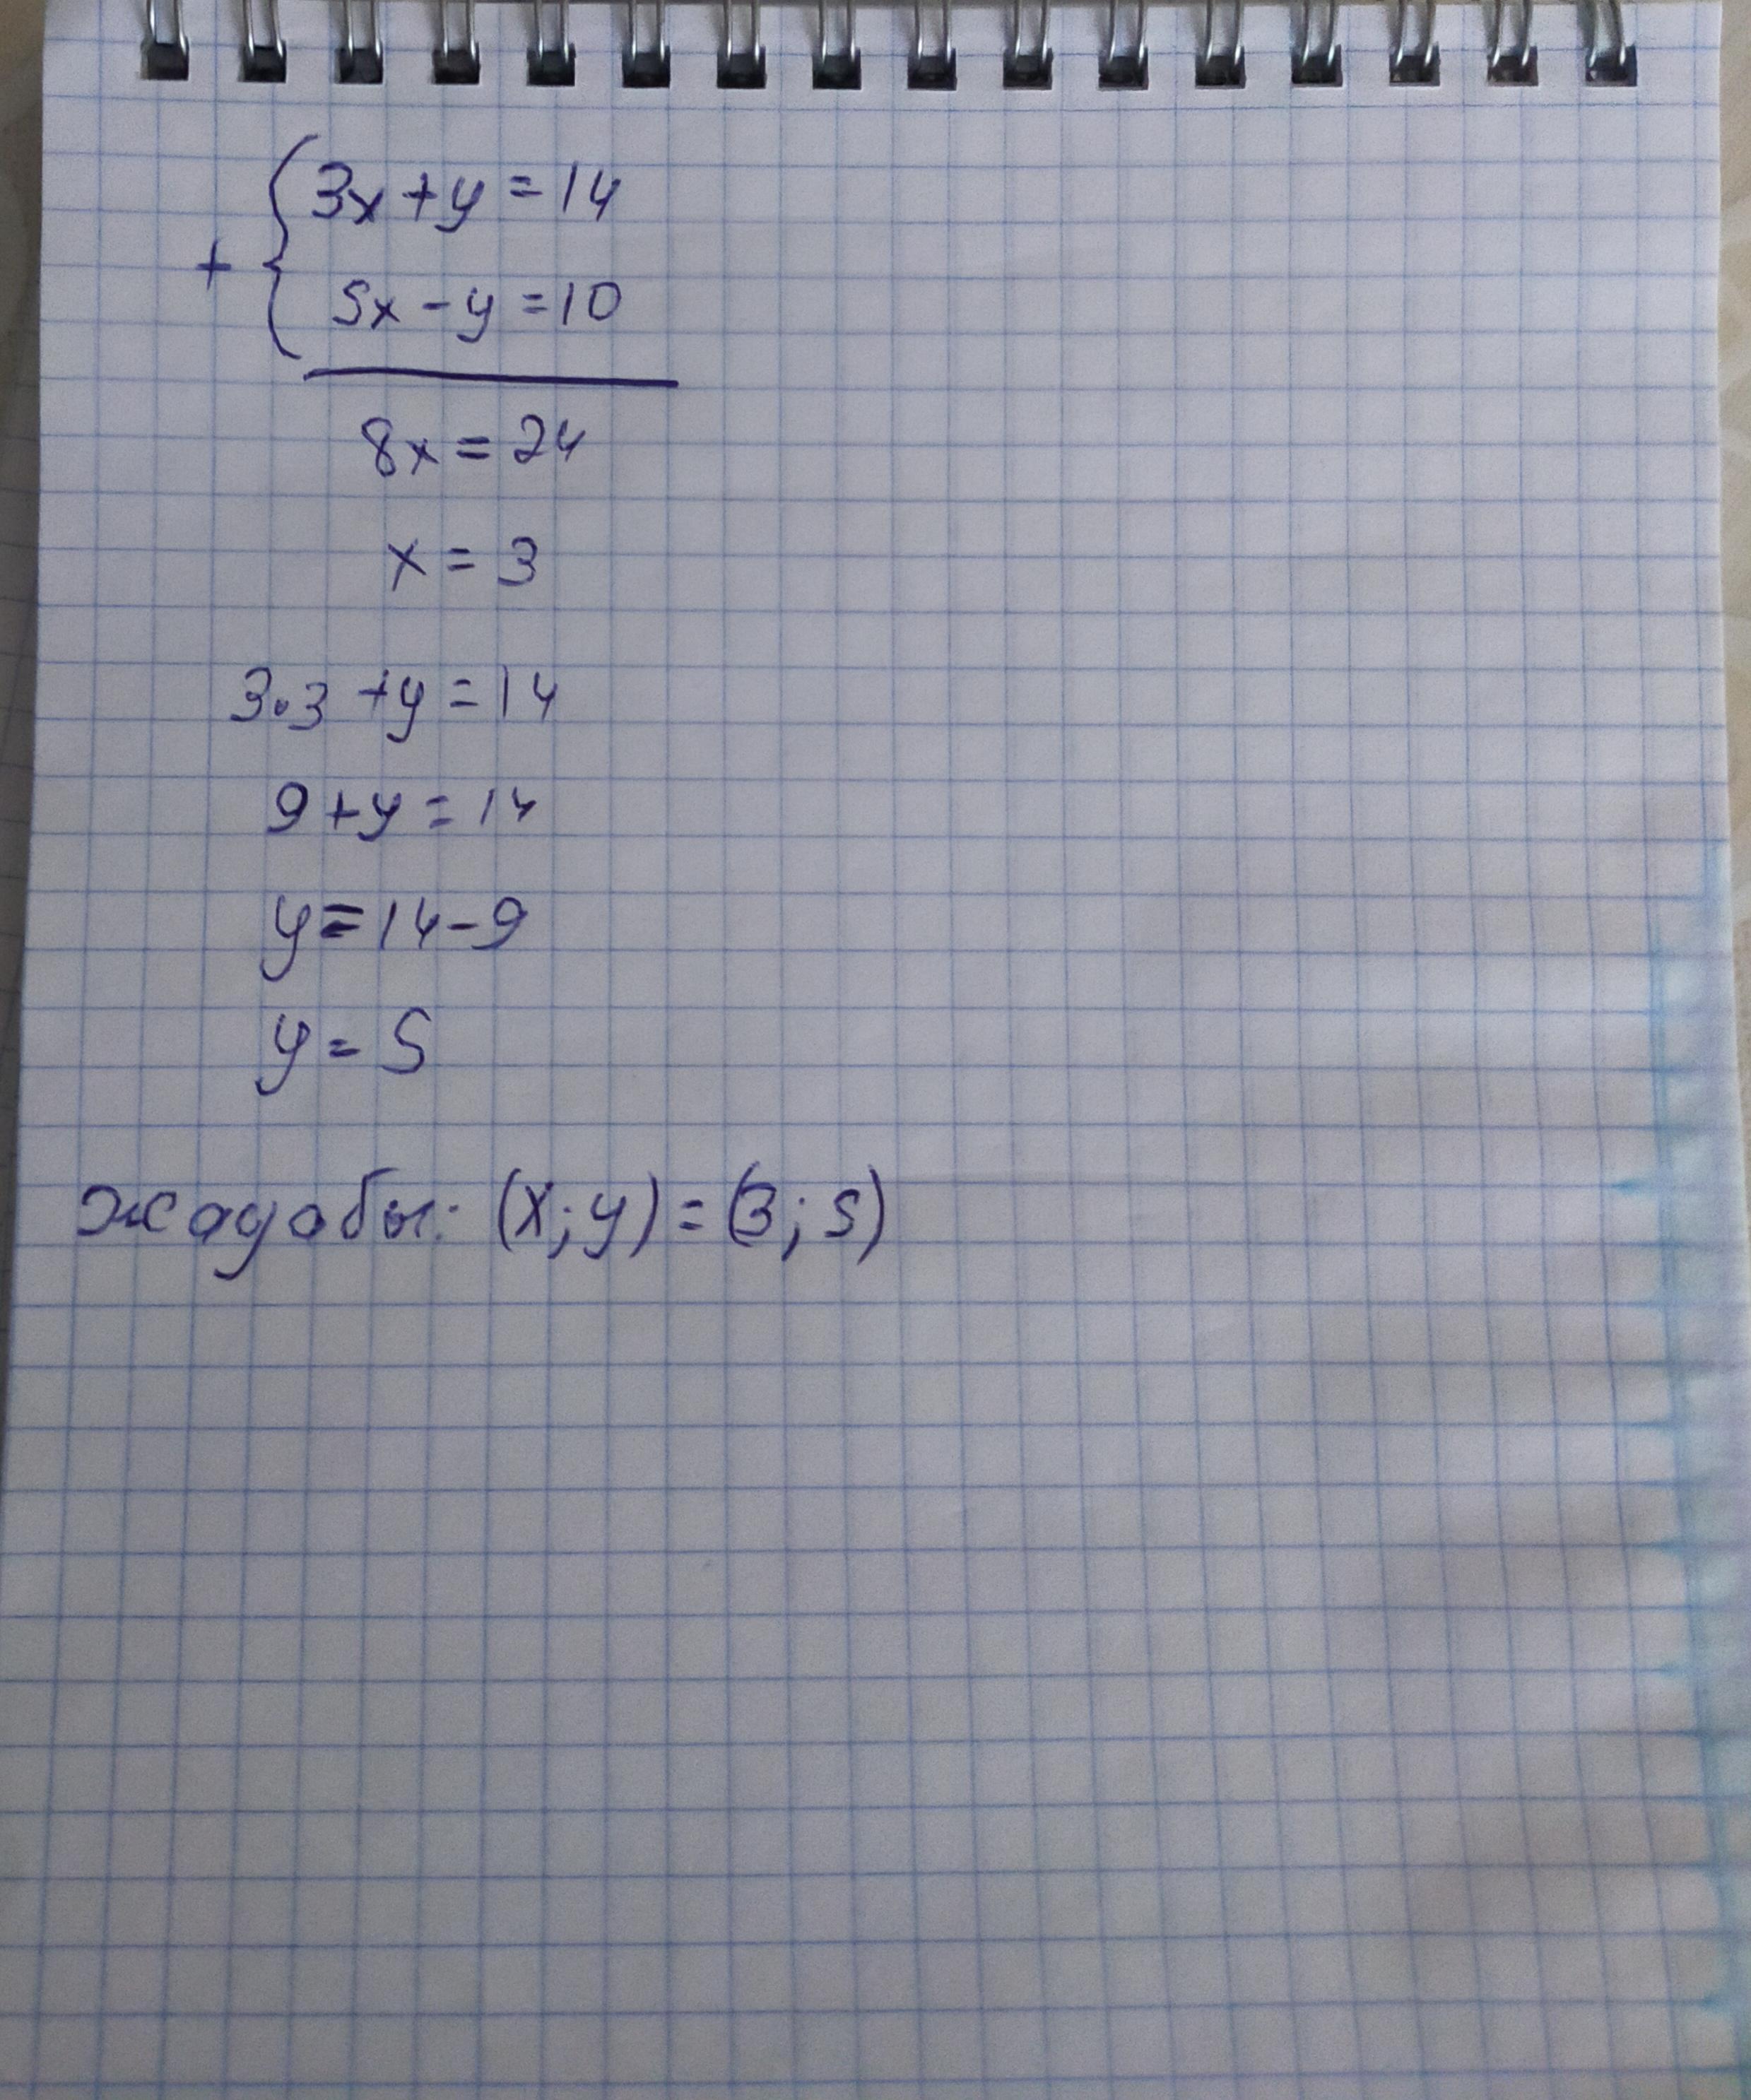 + { 3x + y = 14
5x - y = 10
8x = 24
x = 3
3·3 + y = 14
9 + y = 14
y = 14 - 9
y = 5
жадобы: (x; y) = (3; 5)